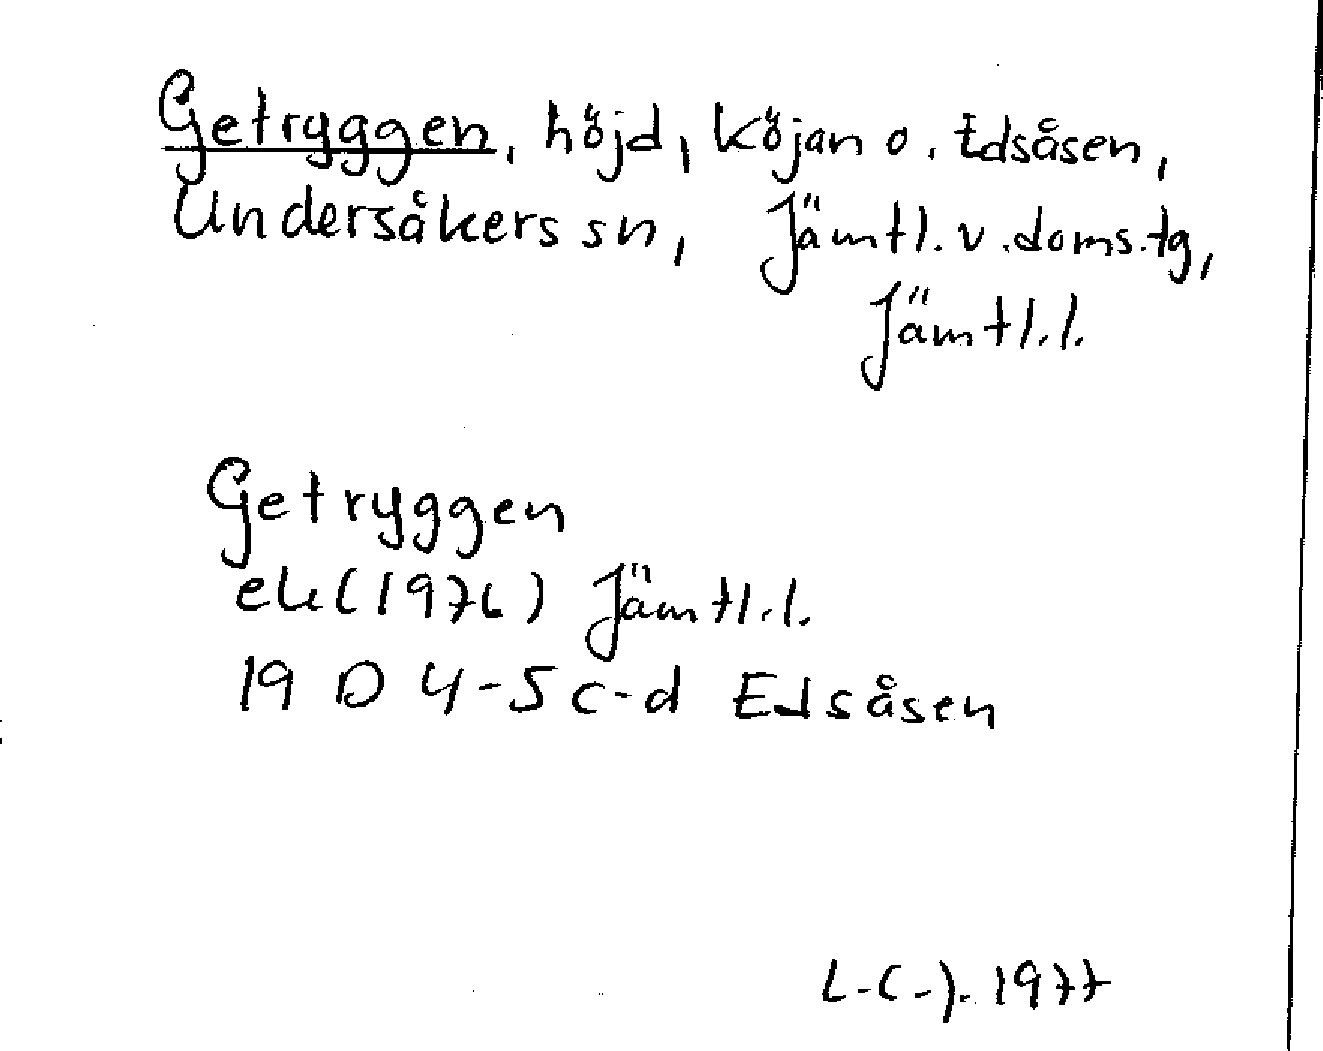 Getryggen, höjd, Köjan o. Edsåsen,
Undersåkers sn, Jämtl. v. doms.tg,
Jämtl.l.
Getryggen
ek (1976) Jämtl.l.
19 D 4-5 c-d Edsåsen
1977